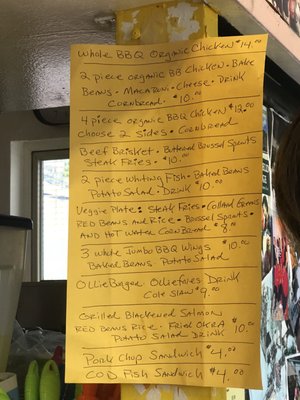 Whole BBQ Organic Chicken $14.00
2 piece organic BB Chicken • Bake
Beans • Macaroni • Cheese • Drink
Cornbread • $10.00
4 piece organic BBQ Chicken $12.00
choose 2 sides • Cornbread
Beef Brisket • Buttered Brussel Sprouts
Steak Fries • $10.00
2 piece Whiting Fish • Baked Beans
Potato Salad • Drink $10.00
Veggie Plate: Steak Fries • Collard Greens
Red Beans and Rice • Brussel Sprouts •
and Hot Water Cornbread $8.00
3 whole Jumbo BBQ Wings $10.00
Baked Beans Potato Salad
Ollie Burger Ollie fries Drink
Cole Slaw $9.00
Grilled Blackened Salmon
Red Beans Rice • Fried Okra $10.00
Potato Salad Drink
Pork Chop Sandwich $4.00
Cod Fish Sandwich $4.00